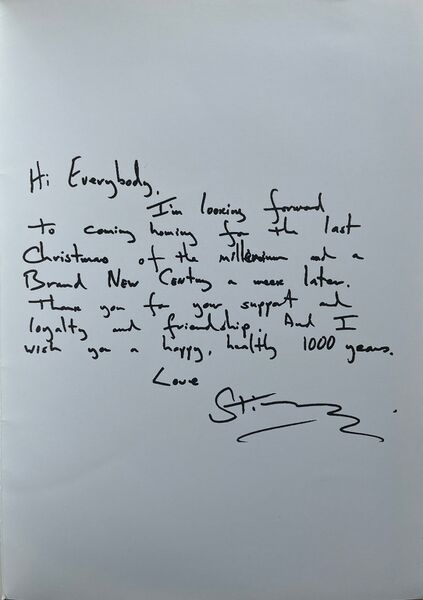 Hi Everybody,
I'm looking forward
to coming homing for the last
Christmas of the millennium and a
Brand New Century a week later.
Thank you for your support and
loyalty and friendship. And I
wish you a happy, healthy 1000 years.
Love
Sting